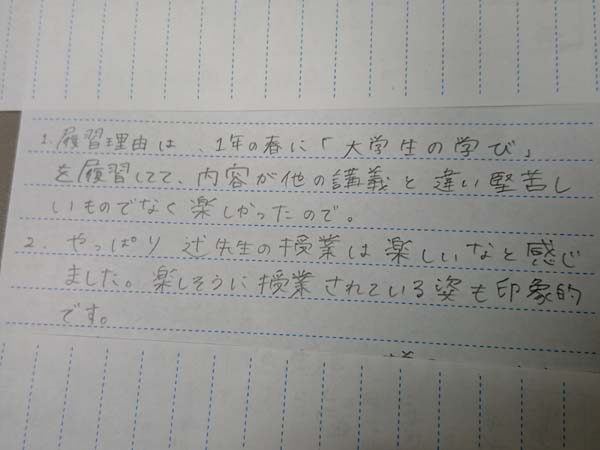 1. 履習理由は、1年の春に「大学生の学び」
を履習してて、内容が他の講義と違い堅苦し
いものでなく楽しかったので。
2. やっぱり辻先生の授業は楽しいなと感じ
ました。楽しそうに授業されている姿も印象的
です。